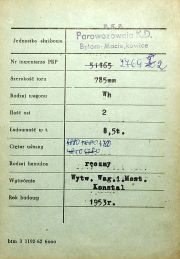 P.K.P.
Jednostka służbowa Parowozownia K.D.
Bytom-Maciejkowice
Nr inwentarza PKP 51465 2769
Szerokość toru 785mm
Rodzaj wagonu Wh
Ilość osi 2
Ładowność w t. 8,5t.
Ciężar własny
Rodzaj hamulca ręczny
Wytwórnia Wytw. Wag. i Most.
Konstal
Rok budowy 1953r.